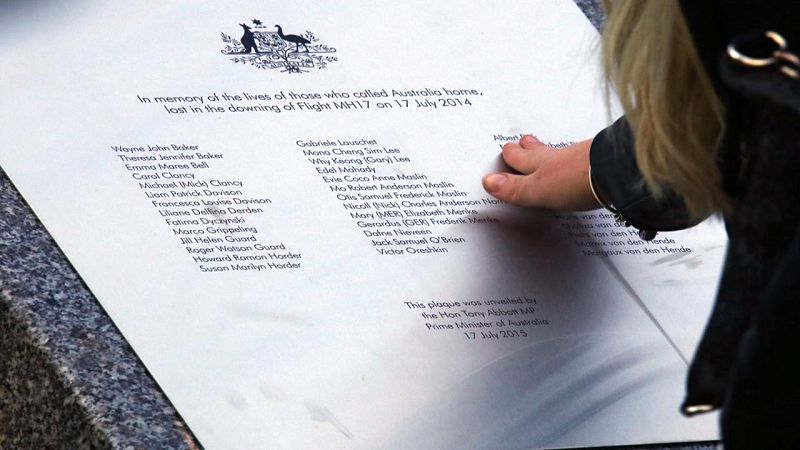 In memory of the lives of those who called Australia home,
lost in the downing of Flight MH17 on 17 July 2014
Wayne John Baker
Theresa Jennifer Baker
Emma Maree Bell
Carol Clancy
Michael (Mick) Clancy
Liam Patrick Davison
Francesca Louise Davison
Liliane Delfine Derden
Fatima Dyczynski
Marco Grippeling
Jill Helen Guard
Roger Watson Guard
Howard Ramon Horder
Susan Marilyn Horder
Gabriele Lauschet
Mona Cheng Sim Lee
Why Keong (Gary) Lee
Edel Mahady
Evie Coco Anne Maslin
Mo Robert Anderson Maslin
Otis Samuel Frederick Maslin
Nicoll (Nick) Charles Anderson
Mary (MER) Elizabeth Menke
Gerardus (GER) Frederik Menke
Dafne Nieveen
Jack Samuel O'Brien
Victor Oreshkin
Albert
van den
van den Hende
Marnix van den Hende
Margaux van den Hende
This plaque was unveiled by
the Hon Tony Abbott MP
Prime Minister of Australia
17 July 2015